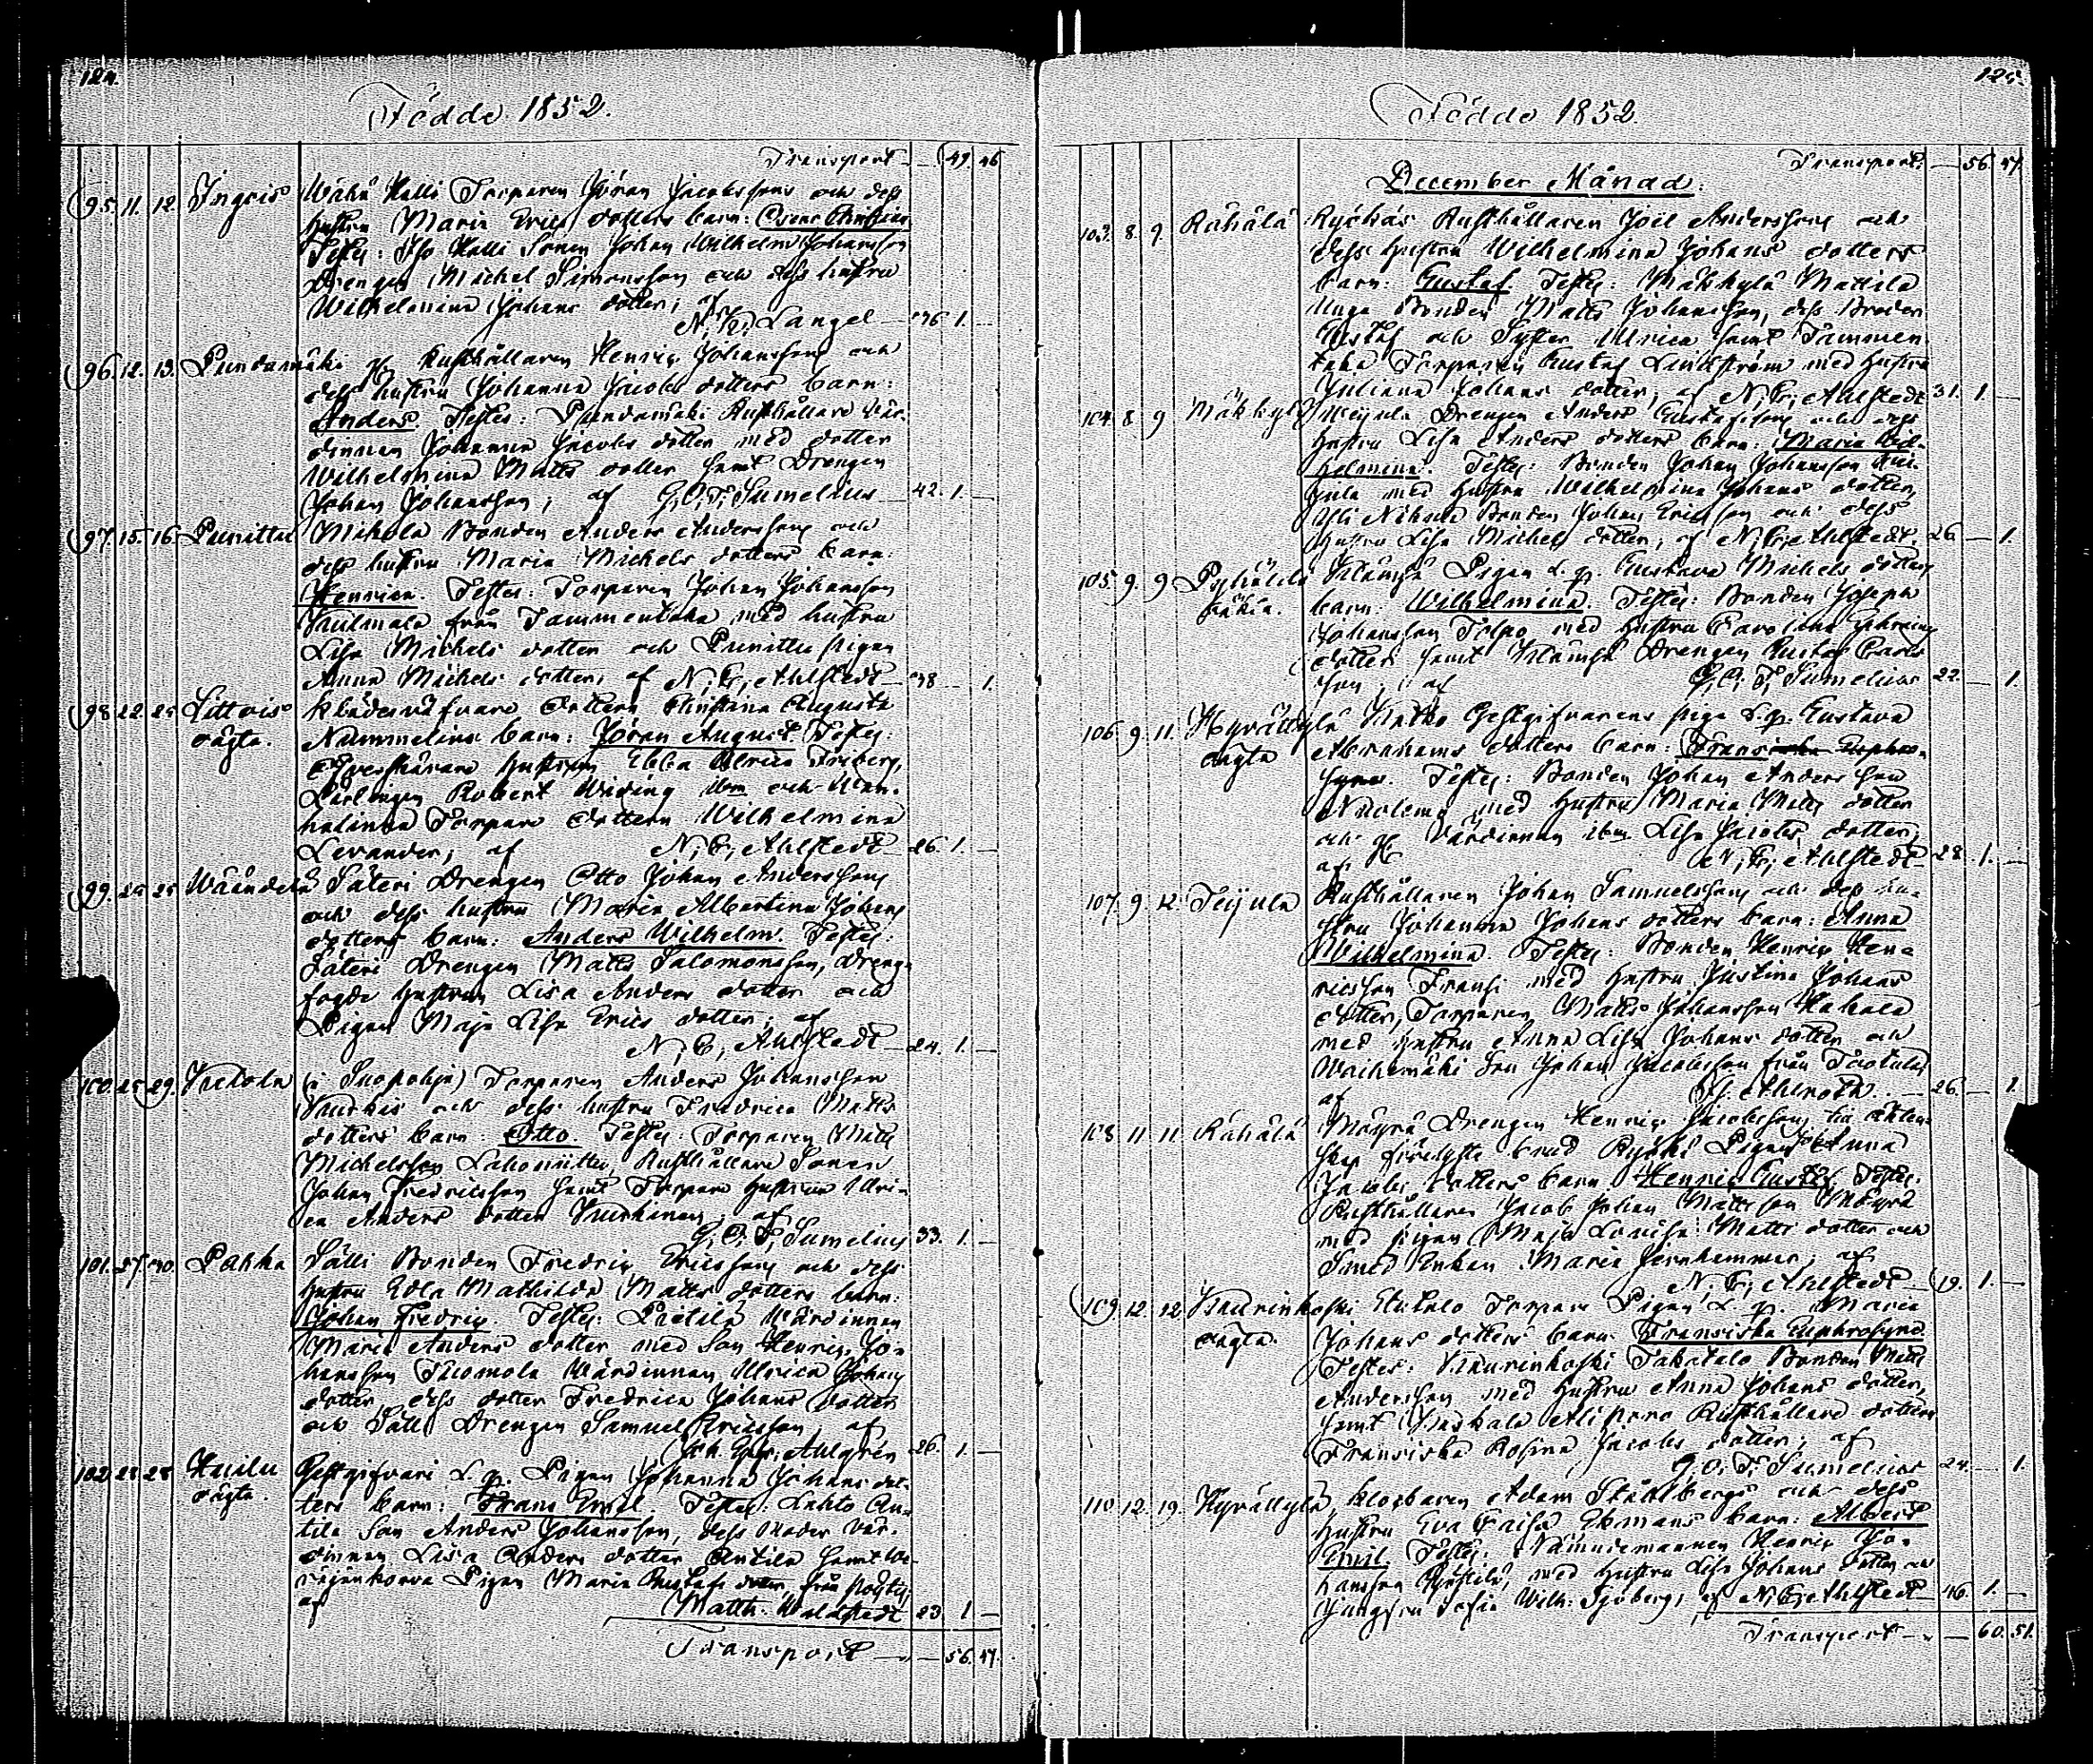 124.
Födde 1852.
Transport — 49. 46
95. 11. 12. Ingris Wähä Kalli Torparen Jöran Jacobssons och dess
hustru Maria Erics dotters barn:
Testes: Iso Kalli Sonen Johan Wilhelm Johansson
Drengen Michel Simonsson och dess hustru
Wilhelmina Johans dotter; af
N. E. Langel — 36 1. —
96. 12. 13. Pundamäki Rusthållaren Henric Johanssons och
dess hustru Johanna Jacobs dotters barn:
Anders. Testes: Pundamäki Rusthållare Vär-
dinnan Johanna Jacobs dotter med dotter
Wilhelmina Matts dotter samt Drengen
Johan Johansson; af G. O. F. Sumelius — 42. 1. —
97. 15. 16. Punittu Mickola Bonden Anders Anderssons och
dess hustru Maria Michels dotters barn:
Henrica. Testes: Torparen Johan Johansson
från Tammentaka med hustru
Lisa Michels dotter och Punittu pigan
Anna Michels dotter; af N. E. Ahlstedt — 38 — 1.
98. 22. 25 Littois Klädesväfvare Dottern Christina Augusta
oägta. Nummelins barn: Jöran August. Testes:
hustrun Ebba Ulrica Friberg,
Lärlingen Robert Widing ibm och
Torpare Dottern Wilhelmina
Levander; af N. E. Ahlstedt — 26. 1. —
99. 24 25 Wäänelä Säteri Drengen Otto Johan Anderssons
och dess hustru Maria Albertina Johans
dotters barn: Anders Wilhelm. Testes:
Säteri Drengen Matts Salomonsson, Dreng-
fogde hustrun Lisa Anders dotter och
Pigan Maja Lisa Erics dotter; af
N. E. Ahlstedt — 24. 1. —
100. 25 29. (i Suopohja) Torparen Anders Johansson
och dess hustru Fredrica Matts
dotters barn: Otto. Testes: Torparen Matts
Michelsson Lahoniittu, Rusthållare Sonen
Johan Fredricsson samt Torpare hustrun Ulri-
ca Anders dotter; af
G. O. F. Sumelius 33. 1. —
101. 27 30. Pahka Sälli Bonden Fredric Ericssons och dess
hustru Edla Mathilda Matts dotters barn:
Johan Fredric. Testes: Pietilä Wärdinnan
Maria Anders dotter med Son Henric Jo-
hansson Tuomola Wärdinnan Ulrica Johans
dotter, dess dotter Fredrica Johans dotter
och Sälli Drengen Samuel Ericsson, af
Joh. Ahlgren 26. 1. —
102. 28 28 Gestgifvari L. q. Pigan Johanna Johans dot-
oägta. ters barn: Frans Emil. Testes: Lahto An-
tila Son Anders Johansson, dess Moder Vär-
dinnan Lisa Anders dotter Antila samt
Pigan Maria Gustafs dotter, från Pöytyä;
af Matth. Waldstedt 23. 1 —
Transport — — 56. 47.
125.
Födde 1852.
Transport: — 56. 47.
December Månad.
103. 8. 9. Rähälä Rusthållaren Joel Anderssons och
dess hustru Wilhelmina Johans dotters
barn: Gustaf. Testes: Mäkkylä Mattila
unga Bonden Matts Johansson, dess Broder
Gustaf och Syster Ulrica samt Tammen
taka Torparen Gustaf Lindström med hustru
Juliana Johans dotter; af N. E. Ahlstedt 31. 1. —
104. 8 9 Mäkkylä Drengen Anders Gustafssons och dess
hustru Lisa Anders dotters barn: Maria Wil-
helmina. Testes: Bonden Johan Johansson
med hustru Wilhelmina Johans dotter,
Yli Bonden Johan Ericsson och dess
hustru Lisa Michels dotter; af N. E. Ahlstedt 26 — 1.
105. 9. 9 Pigan L. q. Gustava Michels dotters
barn: Wilhelmina. Testes: Bonden Joseph
Johansson Tolpo med hustru Carolina Ephraims
dotter samt Drengen Gustaf Carls
son; af G. O. F. Sumelius 22. — 1.
106. 9. 11. Hyvälkylä Gestgifvarens piga L. q. Gustava
oägta Abrahams dotters barn: Frans
Testes: Bonden Johan Andersson
med hustru Maria Matts dotter
och Värdinnan ibm Lisa Jacobs dotter;
af N. E. Ahlstedt 28. 1. —
107. 9. 12 Teijula Rusthållaren Johan Samuelssons och dess hu-
stru Johanna Johans dotters barn: Anna
Wilhelmina. Testes: Bonden Henric Hen-
ricsson Fransi med hustru Justina Johans
dotter, Torparen Matts Johansson Hakala
med hustru Anna Lisa Johans dotter och
Son Johan Jacobsson från
af Ahlroth. — 26. — 1.
108 11 11. Rähälä Mäyrä Drengen Henric Jacobssons
brud Pigan Anna
Jacobs dotters barn Henric Gustaf. Testes:
Rusthållaren Jacob Johan Mattsson Mäyrä
med pigan Maja Lovisa Matts dotter och
Smed Enkan Maria Jernhammar; af
N. E. Ahlstedt (19. 1. —
109. 12. 12. Kaurinkoski Torpare Pigan L. q. Maria
oägta. Johans dotters barn: Fransiska Euphrosyne.
Testes: Kaurinkoski Takatalo Bonden Matts
Andersson med hustru Anna Johans dotter,
samt Rusthållare dotter
Fransiska Rosina Jacobs dotter; af
G. O. F. Sumelius 24. — 1.
110. 12. 19. Hyvälkylä, Klockaren Adam Ståhlbergs och dess
hustru Eva Caisa Ekmans barn: Albert
Emil. Testes: Nämndemannen Henric Jo-
hansson med hustru Lisa Johans dotter och
Jungfru Sofia Wilh. Sjöberg; af N. E. Ahlstedt 46. 1. —
Transport — — 60. 51.